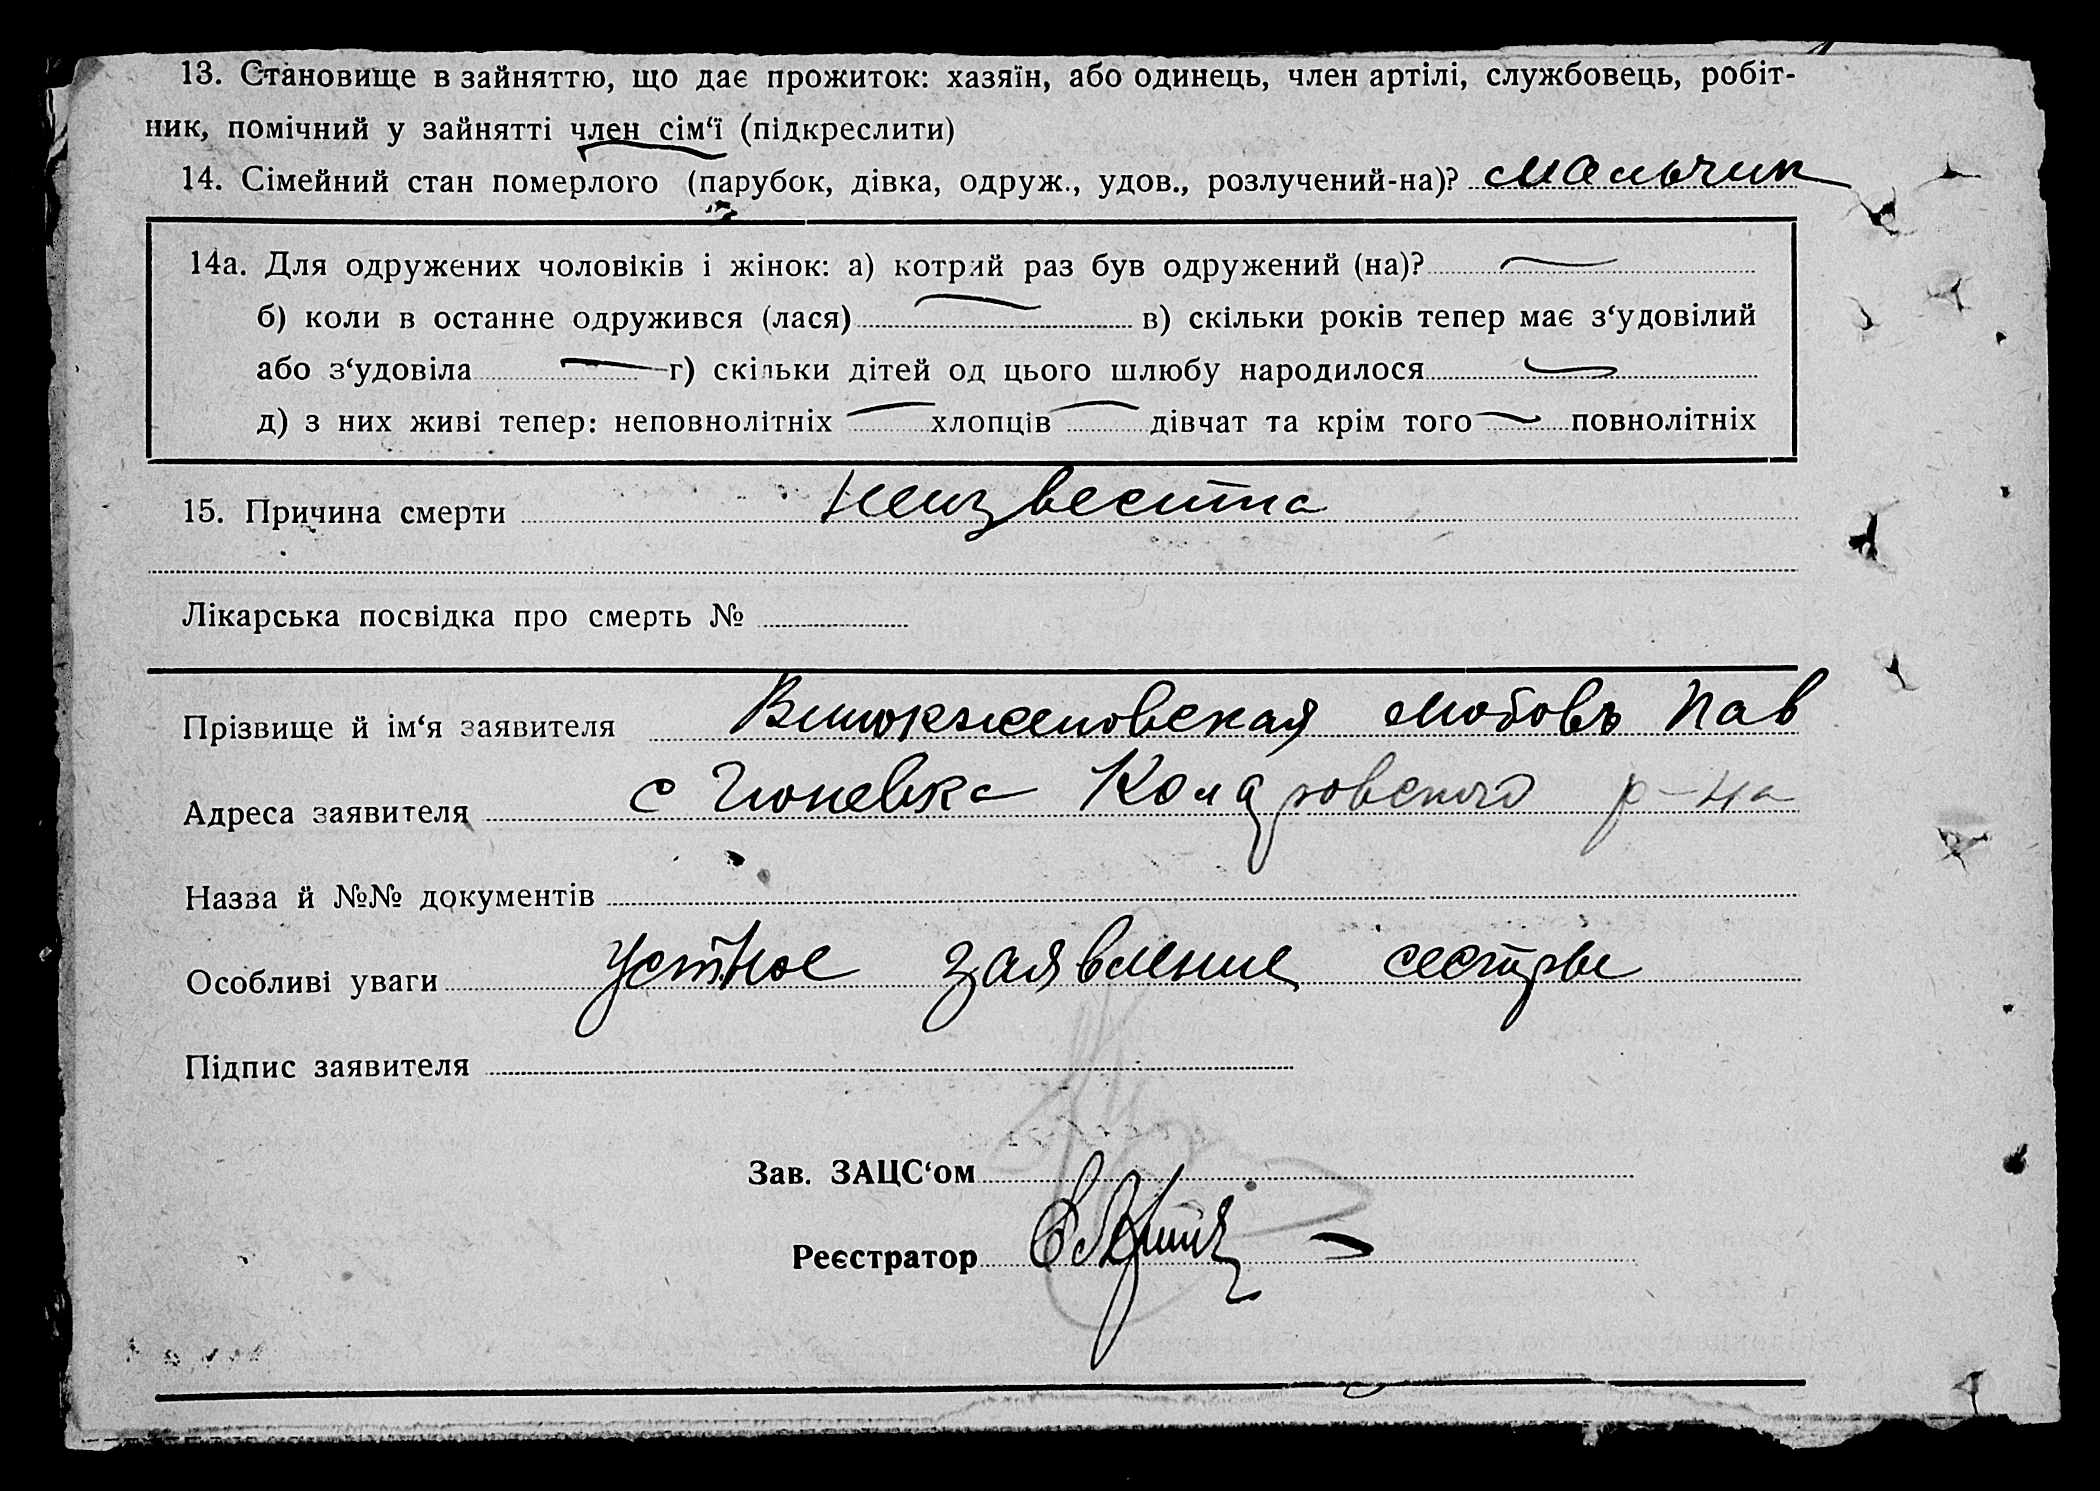 13. Становище в зайняттю, що дає прожиток: хазяїн, або одинець, член артілі, службовець, робіт-
ник, помічний у зайнятті член сім‘ї (підкреслити)
14. Сімейний стан померлого (парубок, дівка, одруж., удов., розлучений-на)? мальчик
14а. Для одружених чоловіків і жінок: а) котрий раз був одружений (на)?
б) коли в останне одружився (лася) в) скільки років тепер має з‘удовілий
або з‘удовіла г) скільки дітей од цього шлюбу народилося
д) з них живі тепер: неповнолітніх хлопців дівчат та крім того повнолітніх
15. Причина смерти неизвестна
Лікарська посвідка про смерть №
Прізвище й ім‘я заявителя Любовь Пав
Адреса заявителя с р-на
Назва й №№ документів
Особливі уваги устное заявление сестры
Підпис заявителя
Зав. ЗАЦС‘ом
Реєстратор